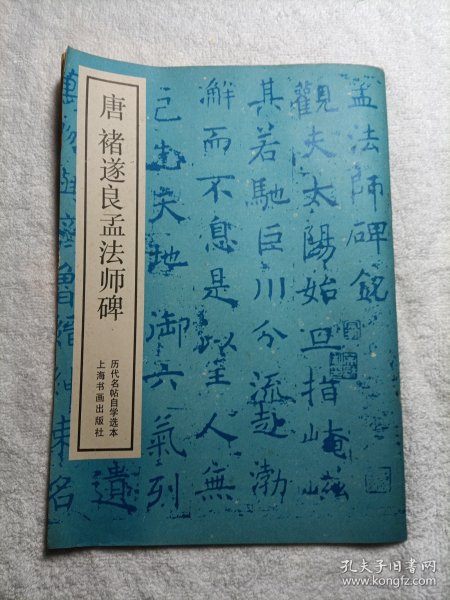 唐 褚遂良孟法师碑
历代名帖自学选本
上海书画出版社
孟法師碑銘
觀夫太陽始旦指崦嵫
其若馳巨川分流赴渤
澥而不息是以至人無
己先天地御六氣列
遺
孔夫子旧书网
www.kongfz.com